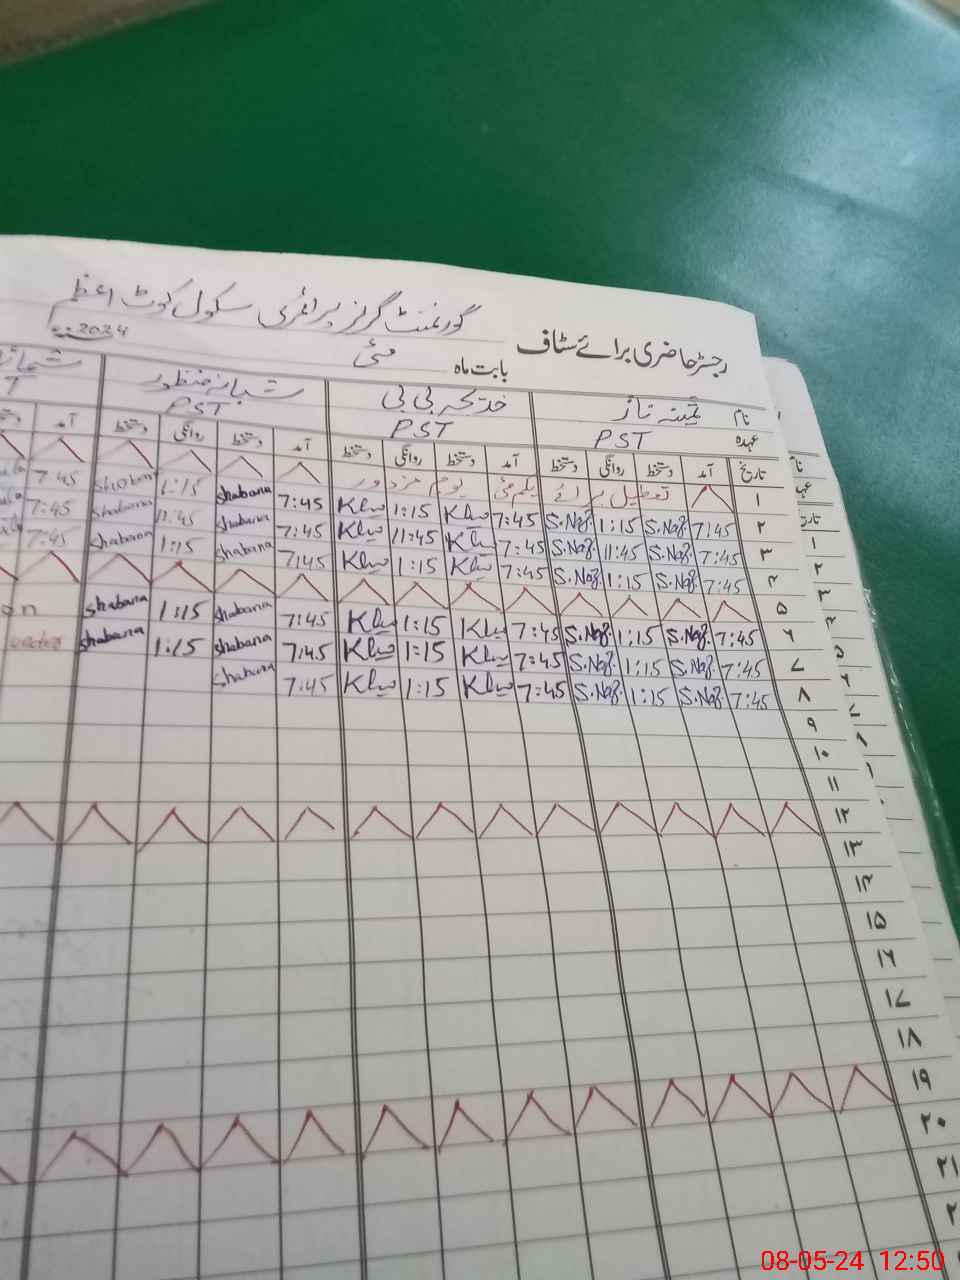 گورنمنٹ گرلز پرائمری سکول کوٹ اعظم
رجسٹر حاضری برائے سٹاف
بابت ماہ مئی 2024
نام ثمینہ ناز خدیجہ بی بی شبانہ منظور
عہدہ PST PST PST T
تاریخ آمد دستخط روانگی دستخط آمد دستخط روانگی دستخط آمد دستخط روانگی دستخط آمد
۱ تعطیل برائے یکم مئی یوم مزدور
۲ 7:45 S.Naz 1:15 S.Naz 7:45 1:15 7:45 shabana 1:15 shabana 7:45
۳ 7:45 S.Naz 11:45 S.Naz 7:45 11:45 7:45 shabana 11:45 shabana 7:45
۴ 7:45 S.Naz 1:15 S.Naz 7:45 1:15 7:45 shabana 1:15 shabana 7:45
۵
۶ 7:45 S.Naz 1:15 S.Naz 7:45 1:15 7:45 shabana 1:15 shabana
۷ 7:45 S.Naz 1:15 S.Naz 7:45 1:15 7:45 shabana 1:15 shabana
۸ 7:45 S.Naz 1:15 S.Naz 7:45 1:15 7:45 shabana
۹
۱۰
۱۱
۱۲
۱۳
۱۴
۱۵
۱۶
۱۷
۱۸
۱۹
۲۰
۲۱
08-05-24 12:50